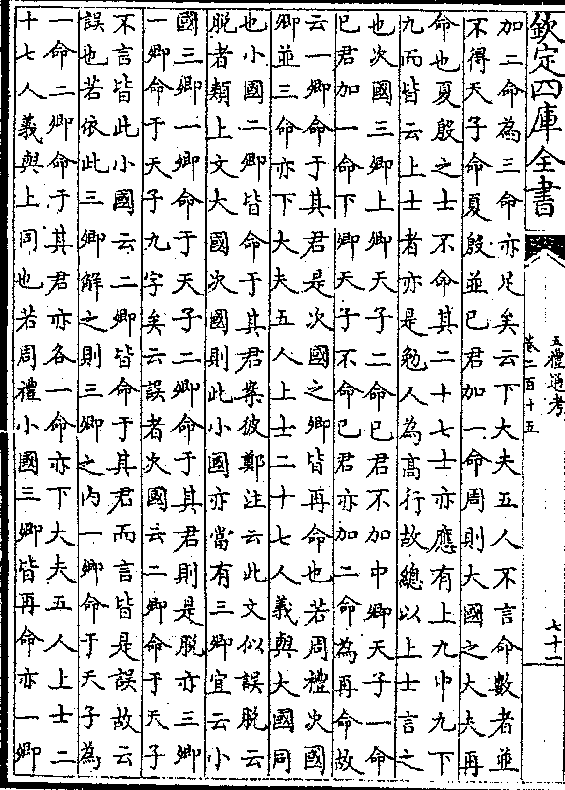 欽定四庫全書
五禮通考
卷二百十五
七十二
加二命為三命亦足矣云下大夫五人不言命數者並
不得天子命夏殷並已君加一命周則大國之大夫再
命也夏殷之士不命其二十七士亦應有上九中九下
九而皆云上士者亦是勉人為高行故總以上士言之
也次國三卿上卿天子二命已君不加中卿天子一命
已君加一命下卿天子不命已君亦加二命為再命故
云一卿命于其君是次國之卿皆再命也若周禮次國
卿並三命亦下大夫五人上士二十七人義與大國同
也小國二卿皆命于其君案彼鄭注云此文似誤脫云
脫者類上文大國次國則此小國亦當有三卿宜云小
國三卿一卿命于天子二卿命于其君則是脫亦三卿
一卿命于天子九字矣云誤者次國云二卿命于天子
不言皆此小國云二卿皆命于其君而言皆是誤故云
誤也若依此三卿解之則三卿之内一卿命于天子為
一命二卿命于其君亦各一命亦下大夫五人上士二
十七人義與上同也若周禮小國三卿皆再命亦一卿